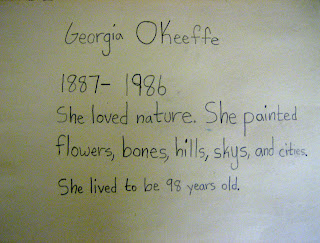 Georgia OKeeffe
1887- 1986
She loved nature. She painted
flowers, bones, hills, skys, and cities.
She lived to be 98 years old.